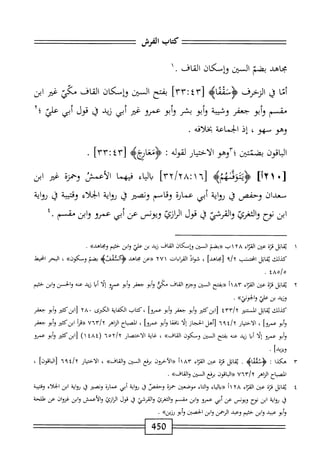 كتاب الفرش
مجاهد بضمّ السين وإسكان القاف .١
أمّا في الزخرف ﴿سَقْفًا﴾ [٣٣:٤٣] بفتح السين وإسكان القاف مكّيّ غير ابن
مقسم وأبو جعفر وشيبة وأبو بشر وأبو عمرو غير أبي زيد في قول أبي عليّ ؛٢
وهو سهو ، إذ الجماعة بخلافه .
الباقون بضمّتين ؛٣ وهو الاختيار لقوله : ﴿مَعَارِجَ﴾ [٣٣:٤٣] .
[٢١٠أ] ﴿يَتَوَفَّىٰهُمُ﴾ [٣٢/٢٨:١٦] بالياء فيهما الأعمشُ وحمزة غير ابن
سعدان وحفص في رواية أبي عمارة وقاسم ونصير في رواية الجلاء وقتيبة في رواية
ابن نوح والثغريّ والقرشيّ في قول الرازيّ ويونس عن أبي عمرو وابن مقسم .٤
١ يُقابل قرّة عين القرّاء ١٢٨ب «بضمّ السين وإسكان القاف زيد بن عليّ وابن خثيم ومجاهد» .
كذلك يُقابل المحتسب ٩/٢ [مجاهد] ، شواذّ القراءات ٢٧١ «عن مجاهد ﴿السُّقْفُ﴾ بضمّ وسكون» ، البحر المحيط
٤٨٥/٥ .
٢ يُقابل قرّة عين القرّاء ١٨٣أ «بفتح السين وجزم القاف مكّيٌّ وأبو جعفر وأبو عمرو إلّا أبا زيد عنه والحسن وابن خثيم
وزيد بن عليّ والجونيّ» .
كذلك يُقابل المستنير ٤٣٣/٢ [ابن كثير وأبو جعفر وأبو عمرو] ، كتاب الكفاية الكبرى ٢٨٠ [ابن كثير وأبو جعفر
وأبو عمرو] ، الاختيار ٦٩٤/٢ [أهل الحجاز إلّا نافعًا وأبو عمرو] ، المصباح الزاهر ٧٦٣/٢ «قرأ ابن كثير وأبو جعفر
وأبو عمرو إلّا أبا زيد عنه بفتح السين وسكون القاف» ، غاية الاختصار ٦٥٢/٢ (١٤٨٤) [ابن كثير وأبو عمرو
ويزيد] .
٣ هكذا : ﴿سُقُفًا﴾ . يُقابل قرّة عين القرّاء ١٨٣أ «الآخرون برفع السين والقاف» ، الاختيار ٦٩٤/٢ [الباقون] ،
المصباح الزاهر ٧٦٣/٢ «الباقون برفع السين والقاف» .
٤ يُقابل قرّة عين القرّاء ١٢٨أ «بالياء والتاء موضعين حمزة وحفصٌ في رواية أبي عمارة ونصير في رواية ابن الجلاء وقتيبة
في رواية ابن نوح ويونس عن أبي عمرو وابن مقسم والثغريّ والقرشيّ في قول الرازيّ والأعمش وابن غزوان عن طلحة
وأبو عبيد وابن خثيم وعبد الرحمن وابن الحصين وأبو رزين» .
450